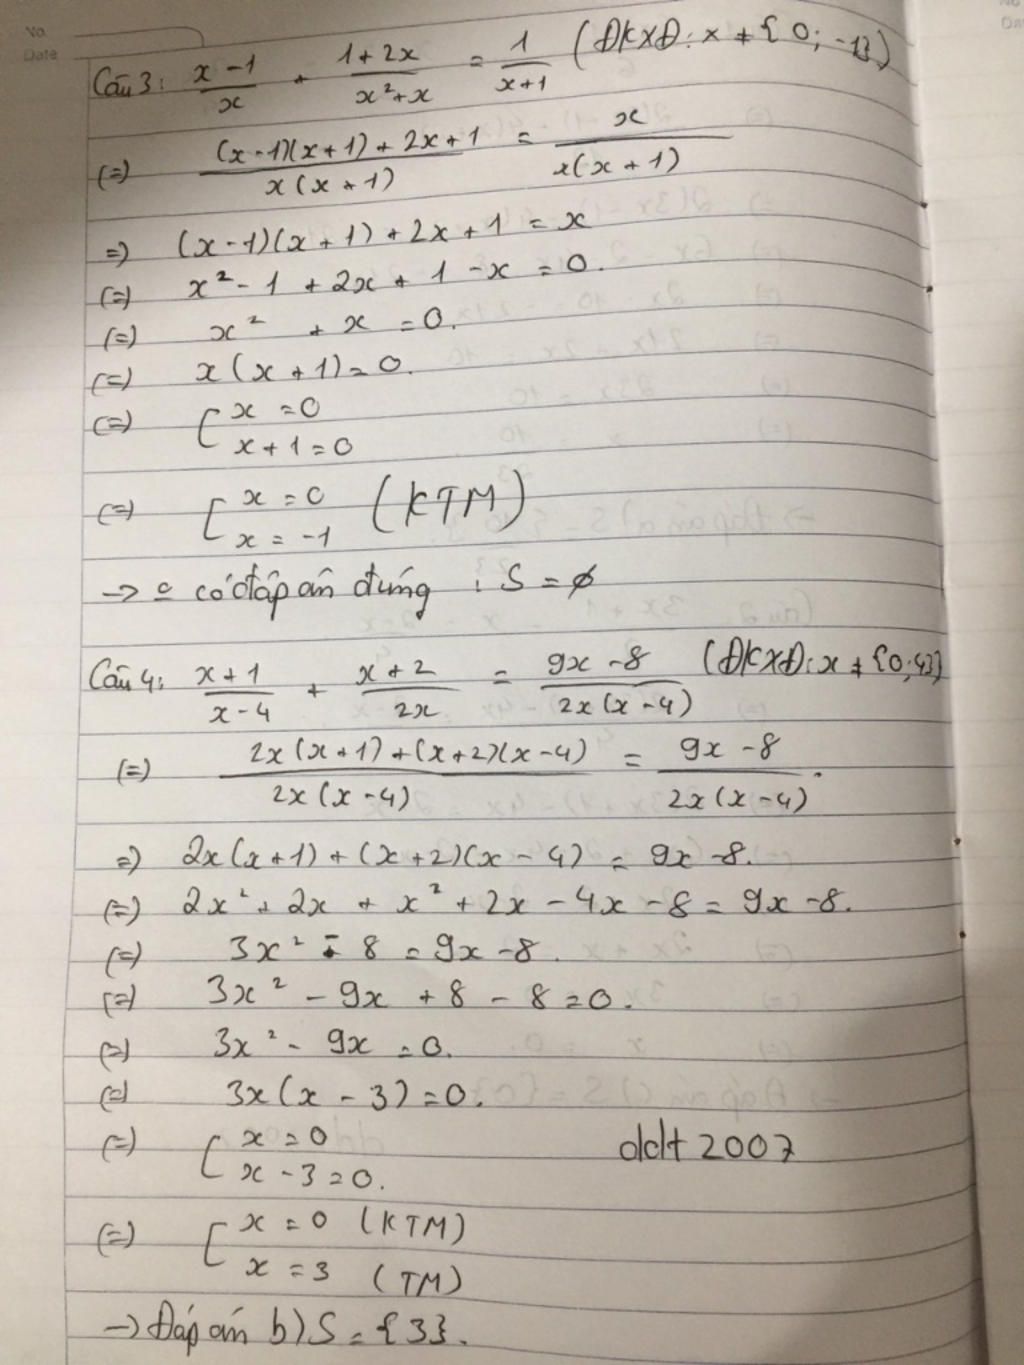 No.
Date
Câu 3: (x - 1)/x + (1 + 2x)/(x² + x) = 1/(x + 1) (ĐKXĐ: x ≠ {0; -1})
(=) ((x - 1)(x + 1) + 2x + 1)/(x(x + 1)) = x/(x(x + 1))
=) (x - 1)(x + 1) + 2x + 1 = x
(=) x² - 1 + 2x + 1 - x = 0.
(=) x² + x = 0.
(=) x(x + 1) = 0.
(=) [ x = 0
x + 1 = 0
(=) [ x = 0 (KTM)
x = -1
-> có đáp án đúng : S = ∅
Câu 4: (x + 1)/(x - 4) + (x + 2)/(2x) = (9x - 8)/(2x(x - 4)) (ĐKXĐ: x ≠ {0; 4})
(=) (2x(x + 1) + (x + 2)(x - 4))/(2x(x - 4)) = (9x - 8)/(2x(x - 4)).
=) 2x(x + 1) + (x + 2)(x - 4) = 9x - 8.
(=) 2x² + 2x + x² + 2x - 4x - 8 = 9x - 8.
(=) 3x² - 8 = 9x - 8.
(=) 3x² - 9x + 8 - 8 = 0.
(=) 3x² - 9x = 0.
(=) 3x(x - 3) = 0.
(=) [ x = 0
x - 3 = 0.
ddt 2007
(=) [ x = 0 (KTM)
x = 3 (TM)
-> Đáp án b) S = {3}.